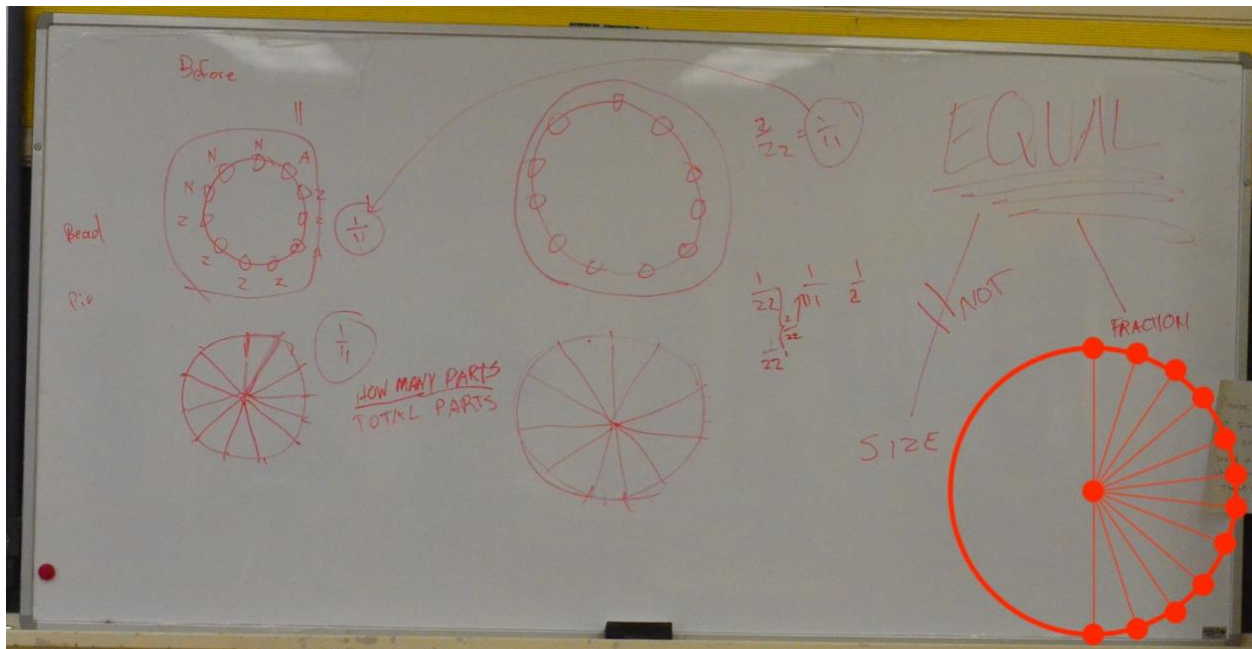 Before
11
N
N
A
N
2
2
2
A
2
2
2
1/11
Bead
Pie
1/11
HOW MANY PARTS
TOTAL PARTS
2/22 = 1/11
1/22 1/11 1/2
2/22
1/22
EQUAL
NOT
FRACTION
SIZE